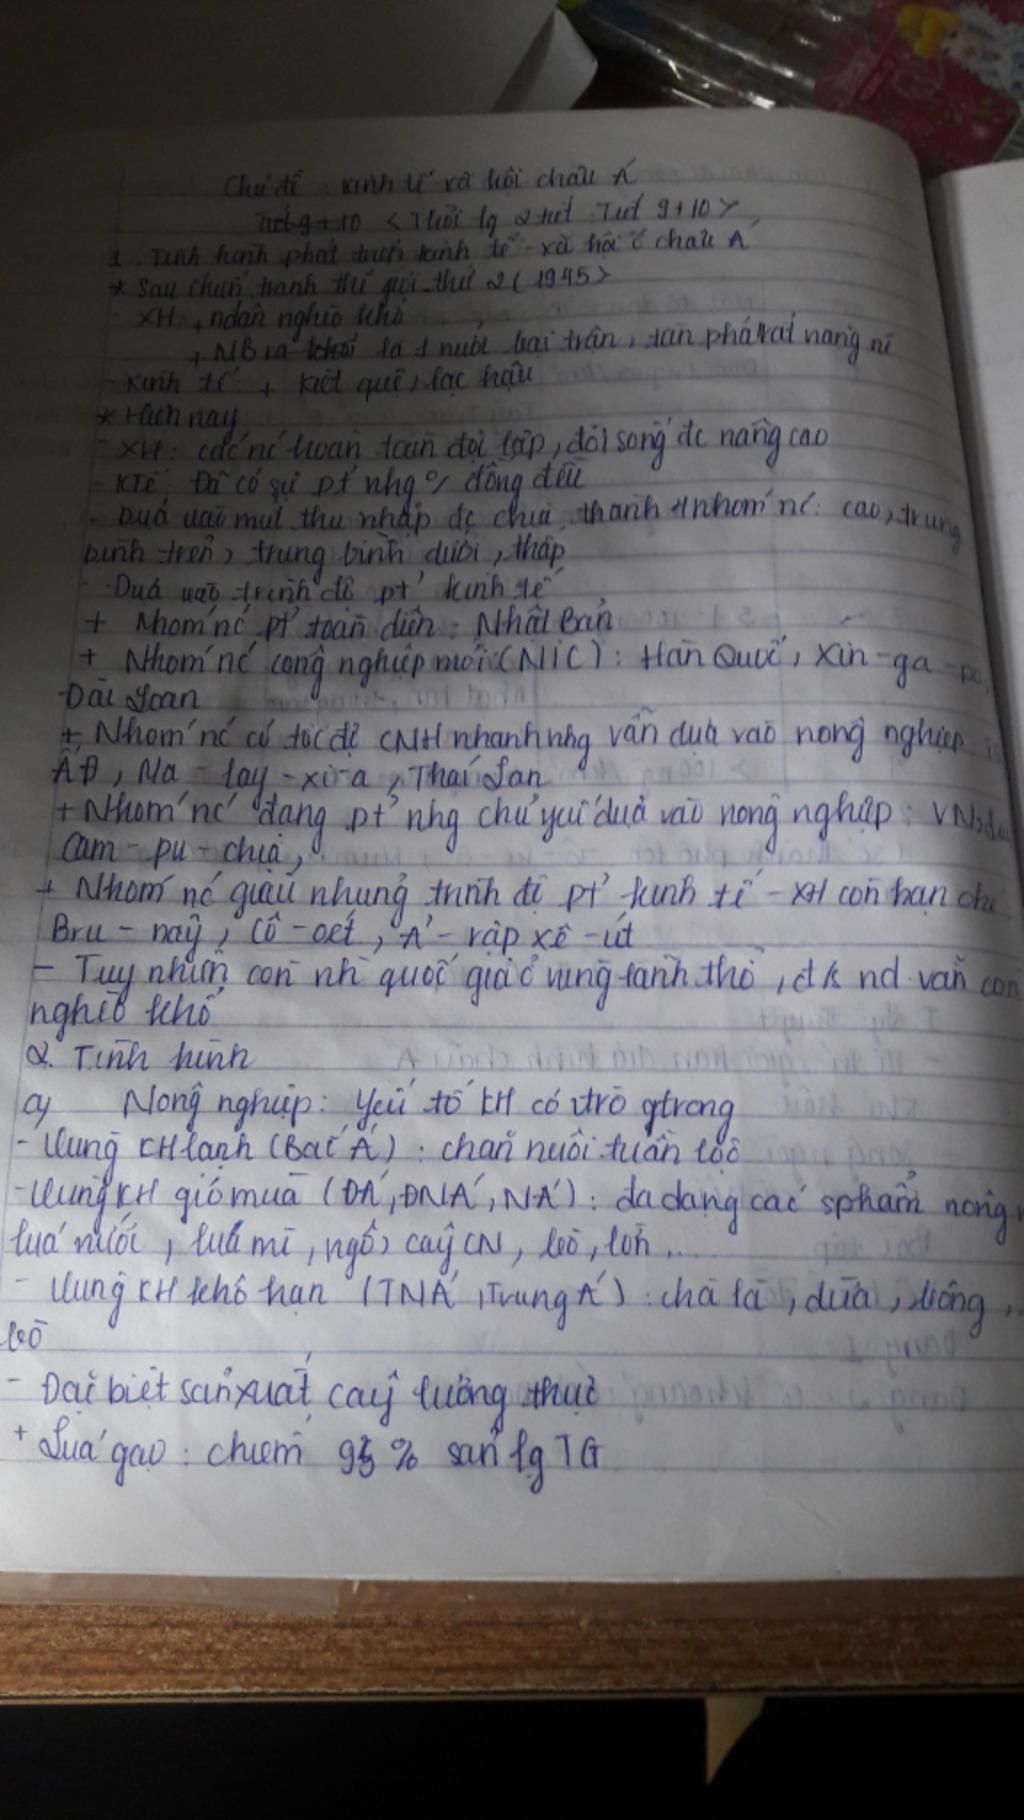 Chủ đề: kinh tế xã hội châu Á
Tiết 9+10 < Thời lg 2 tiết: Tiết 9+10 >
1. Tình hình phát triển kinh tế - xã hội ở châu Á
* Sau chiến tranh thế giới thứ 2 (1945>
- XH: + ndân nghèo khổ
+ NB là 1 nước bại trận, tàn phá rất nặng nề
- Kinh tế: + Kiệt quệ, lạc hậu
* Hiện nay
- XH: các nc hoàn toàn độc lập, đời sống đc nâng cao
- KTế: Đã có sự pt nhg % đồng đều
- Dựa vào mức thu nhập đc chia thành 4 nhóm nc: cao, trung
bình trên, trung bình dưới, thấp
- Dựa vào trình độ pt kinh tế
+ Nhóm nc pt toàn diện: Nhật Bản
+ Nhóm nc công nghiệp mới (NIC): Hàn Quốc, Xin-ga-po,
Đài Loan
+ Nhóm nc có tốc độ CNH nhanh nhg vẫn dựa vào nông nghiệp
ÂĐ, Ma-lay-xi-a, Thái Lan
+ Nhóm nc đang pt nhg chủ yếu dựa vào nông nghiệp: VN,
Cam-pu-chia,
+ Nhóm nc giàu nhưng trình độ pt kinh tế - XH còn hạn chế
Bru-nây, Cô-oét, Ả-rập xê-út
- Tuy nhiên còn nh quốc gia ở vùng lãnh thổ, đk nd vẫn còn
nghèo khổ
2. Tình hình
a) Nông nghiệp: Yếu tố KH có vtrò qtrọng
- Vùng KH lạnh (Bắc Á): chăn nuôi tuần lộc
- Vùng KH gió mùa (ĐÁ, ĐNÁ, NÁ): đa dạng các sphẩm nông n
lúa nước, lúa mì, ngô, cây CN, bò, lợn,...
- Vùng KH khô hạn (TNÁ, Trung Á): chà là, dừa, bông,
bò
- Đặc biệt sản xuất cây lương thực
+ Lúa gạo: chiếm 93% sản lg TG